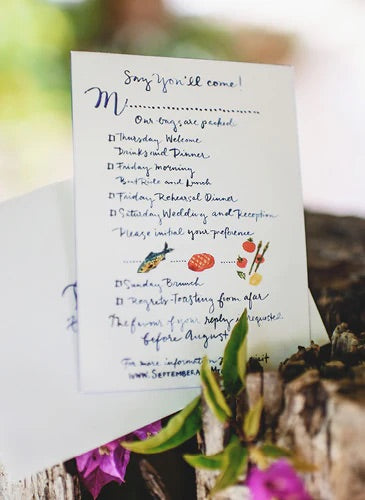 Say You'll come!
M
Our bags are packed
Thursday Welcome
Drinks and Dinner
Friday Morning
Boat Ride and Lunch
Friday Rehearsal Dinner
Saturday Wedding and Reception
Please initial your preference
Sunday Brunch
Regrets-Toasting from afar
The favour of your reply is requested
before August
For more information visit
www.September